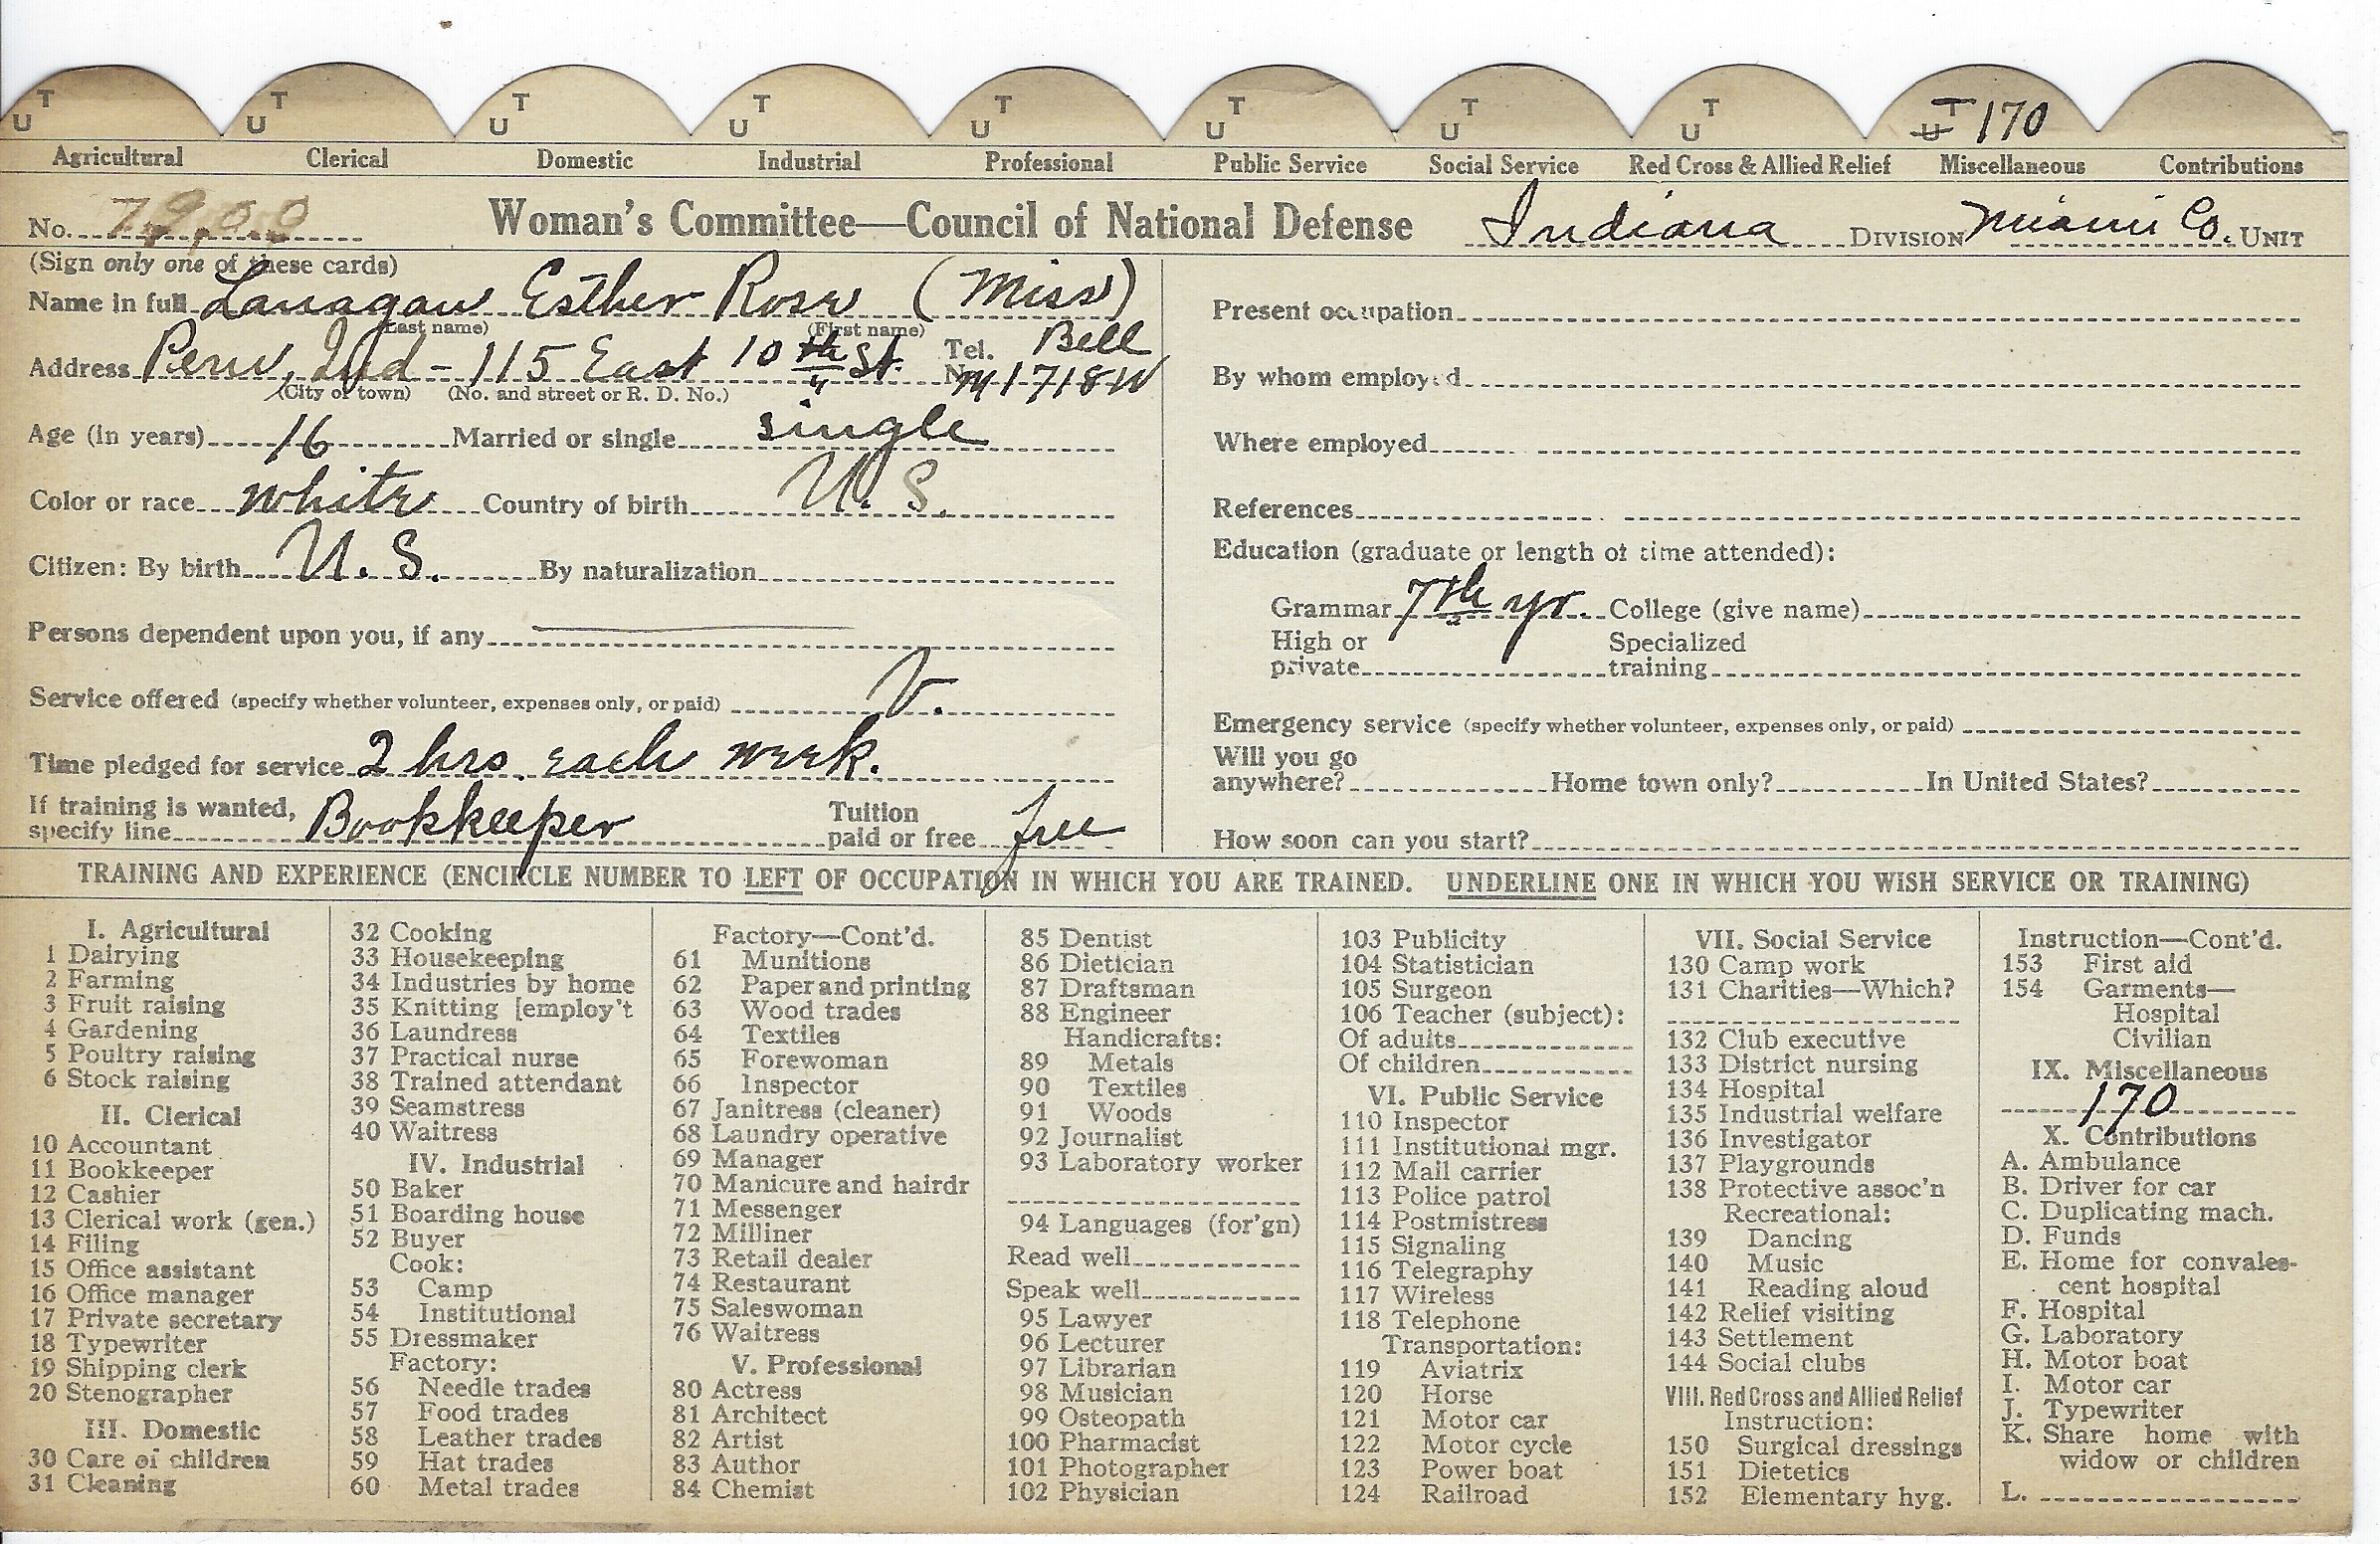 T T T T T T T T T 170
U U U U U U U U U
Agricultural Clerical Domestic Industrial Professional Public Service Social Service Red Cross & Allied Relief Miscellaneous Contributions
No. 7900 Woman's Committee—Council of National Defense Indiana DIVISION Miami Co. UNIT
(Sign only one of these cards)
Name in full Lanagan Esther Rose (Miss)
(Last name) (First name)
Address Peru, Ind - 115 East 10th St. Tel. No. Bell M1718W
(City or town) (No. and street or R. D. No.)
Age (in years) 16 Married or single single
Color or race white Country of birth U. S.
Citizen: By birth U. S. By naturalization
Persons dependent upon you, if any
Service offered (specify whether volunteer, expenses only, or paid) V.
Time pledged for service 2 hrs. each week.
If training is wanted, Tuition
specify line Bookkeeper paid or free free
Present occupation
By whom employed
Where employed
References
Education (graduate or length of time attended):
Grammar 7th yr. College (give name)
High or Specialized
private training
Emergency service (specify whether volunteer, expenses only, or paid)
Will you go
anywhere? Home town only? In United States?
How soon can you start?
TRAINING AND EXPERIENCE (ENCIRCLE NUMBER TO LEFT OF OCCUPATION IN WHICH YOU ARE TRAINED. UNDERLINE ONE IN WHICH YOU WISH SERVICE OR TRAINING)
I. Agricultural
1 Dairying
2 Farming
3 Fruit raising
4 Gardening
5 Poultry raising
6 Stock raising
II. Clerical
10 Accountant
11 Bookkeeper
12 Cashier
13 Clerical work (gen.)
14 Filing
15 Office assistant
16 Office manager
17 Private secretary
18 Typewriter
19 Shipping clerk
20 Stenographer
III. Domestic
30 Care of children
31 Cleaning
32 Cooking
33 Housekeeping
34 Industries by home
35 Knitting [employ't
36 Laundress
37 Practical nurse
38 Trained attendant
39 Seamstress
40 Waitress
IV. Industrial
50 Baker
51 Boarding house
52 Buyer
Cook:
53 Camp
54 Institutional
55 Dressmaker
Factory:
56 Needle trades
57 Food trades
58 Leather trades
59 Hat trades
60 Metal trades
Factory—Cont'd.
61 Munitions
62 Paper and printing
63 Wood trades
64 Textiles
65 Forewoman
66 Inspector
67 Janitress (cleaner)
68 Laundry operative
69 Manager
70 Manicure and hairdr
71 Messenger
72 Milliner
73 Retail dealer
74 Restaurant
75 Saleswoman
76 Waitress
V. Professional
80 Actress
81 Architect
82 Artist
83 Author
84 Chemist
85 Dentist
86 Dietician
87 Draftsman
88 Engineer
Handicrafts:
89 Metals
90 Textiles
91 Woods
92 Journalist
93 Laboratory worker
94 Languages (for'gn)
Read well
Speak well
95 Lawyer
96 Lecturer
97 Librarian
98 Musician
99 Osteopath
100 Pharmacist
101 Photographer
102 Physician
103 Publicity
104 Statistician
105 Surgeon
106 Teacher (subject):
Of adults
Of children
VI. Public Service
110 Inspector
111 Institutional mgr.
112 Mail carrier
113 Police patrol
114 Postmistress
115 Signaling
116 Telegraphy
117 Wireless
118 Telephone
Transportation:
119 Aviatrix
120 Horse
121 Motor car
122 Motor cycle
123 Power boat
124 Railroad
VII. Social Service
130 Camp work
131 Charities—Which?
132 Club executive
133 District nursing
134 Hospital
135 Industrial welfare
136 Investigator
137 Playgrounds
138 Protective assoc'n
Recreational:
139 Dancing
140 Music
141 Reading aloud
142 Relief visiting
143 Settlement
144 Social clubs
VIII. Red Cross and Allied Relief
Instruction:
150 Surgical dressings
151 Dietetics
152 Elementary hyg.
Instruction—Cont'd.
153 First aid
154 Garments—
Hospital
Civilian
IX. Miscellaneous
170
X. Contributions
A. Ambulance
B. Driver for car
C. Duplicating mach.
D. Funds
E. Home for convales-
cent hospital
F. Hospital
G. Laboratory
H. Motor boat
I. Motor car
J. Typewriter
K. Share home with
widow or children
L.